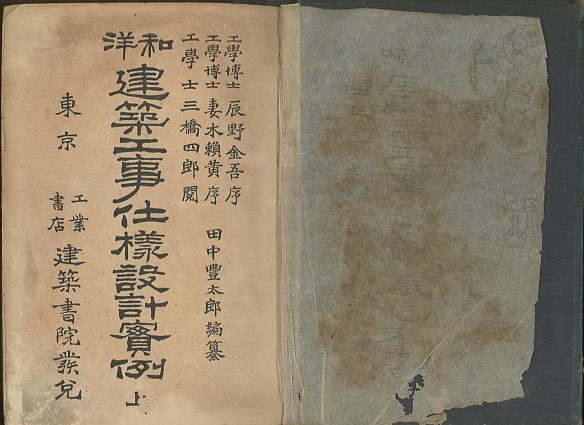 工學博士 辰野金吾序
工學博士 妻木賴黄序
工學士 三橋四郎閲
田中豐太郎編纂
和洋
建築工事仕様設計實例 上
東京
工業書店
建築書院發兌